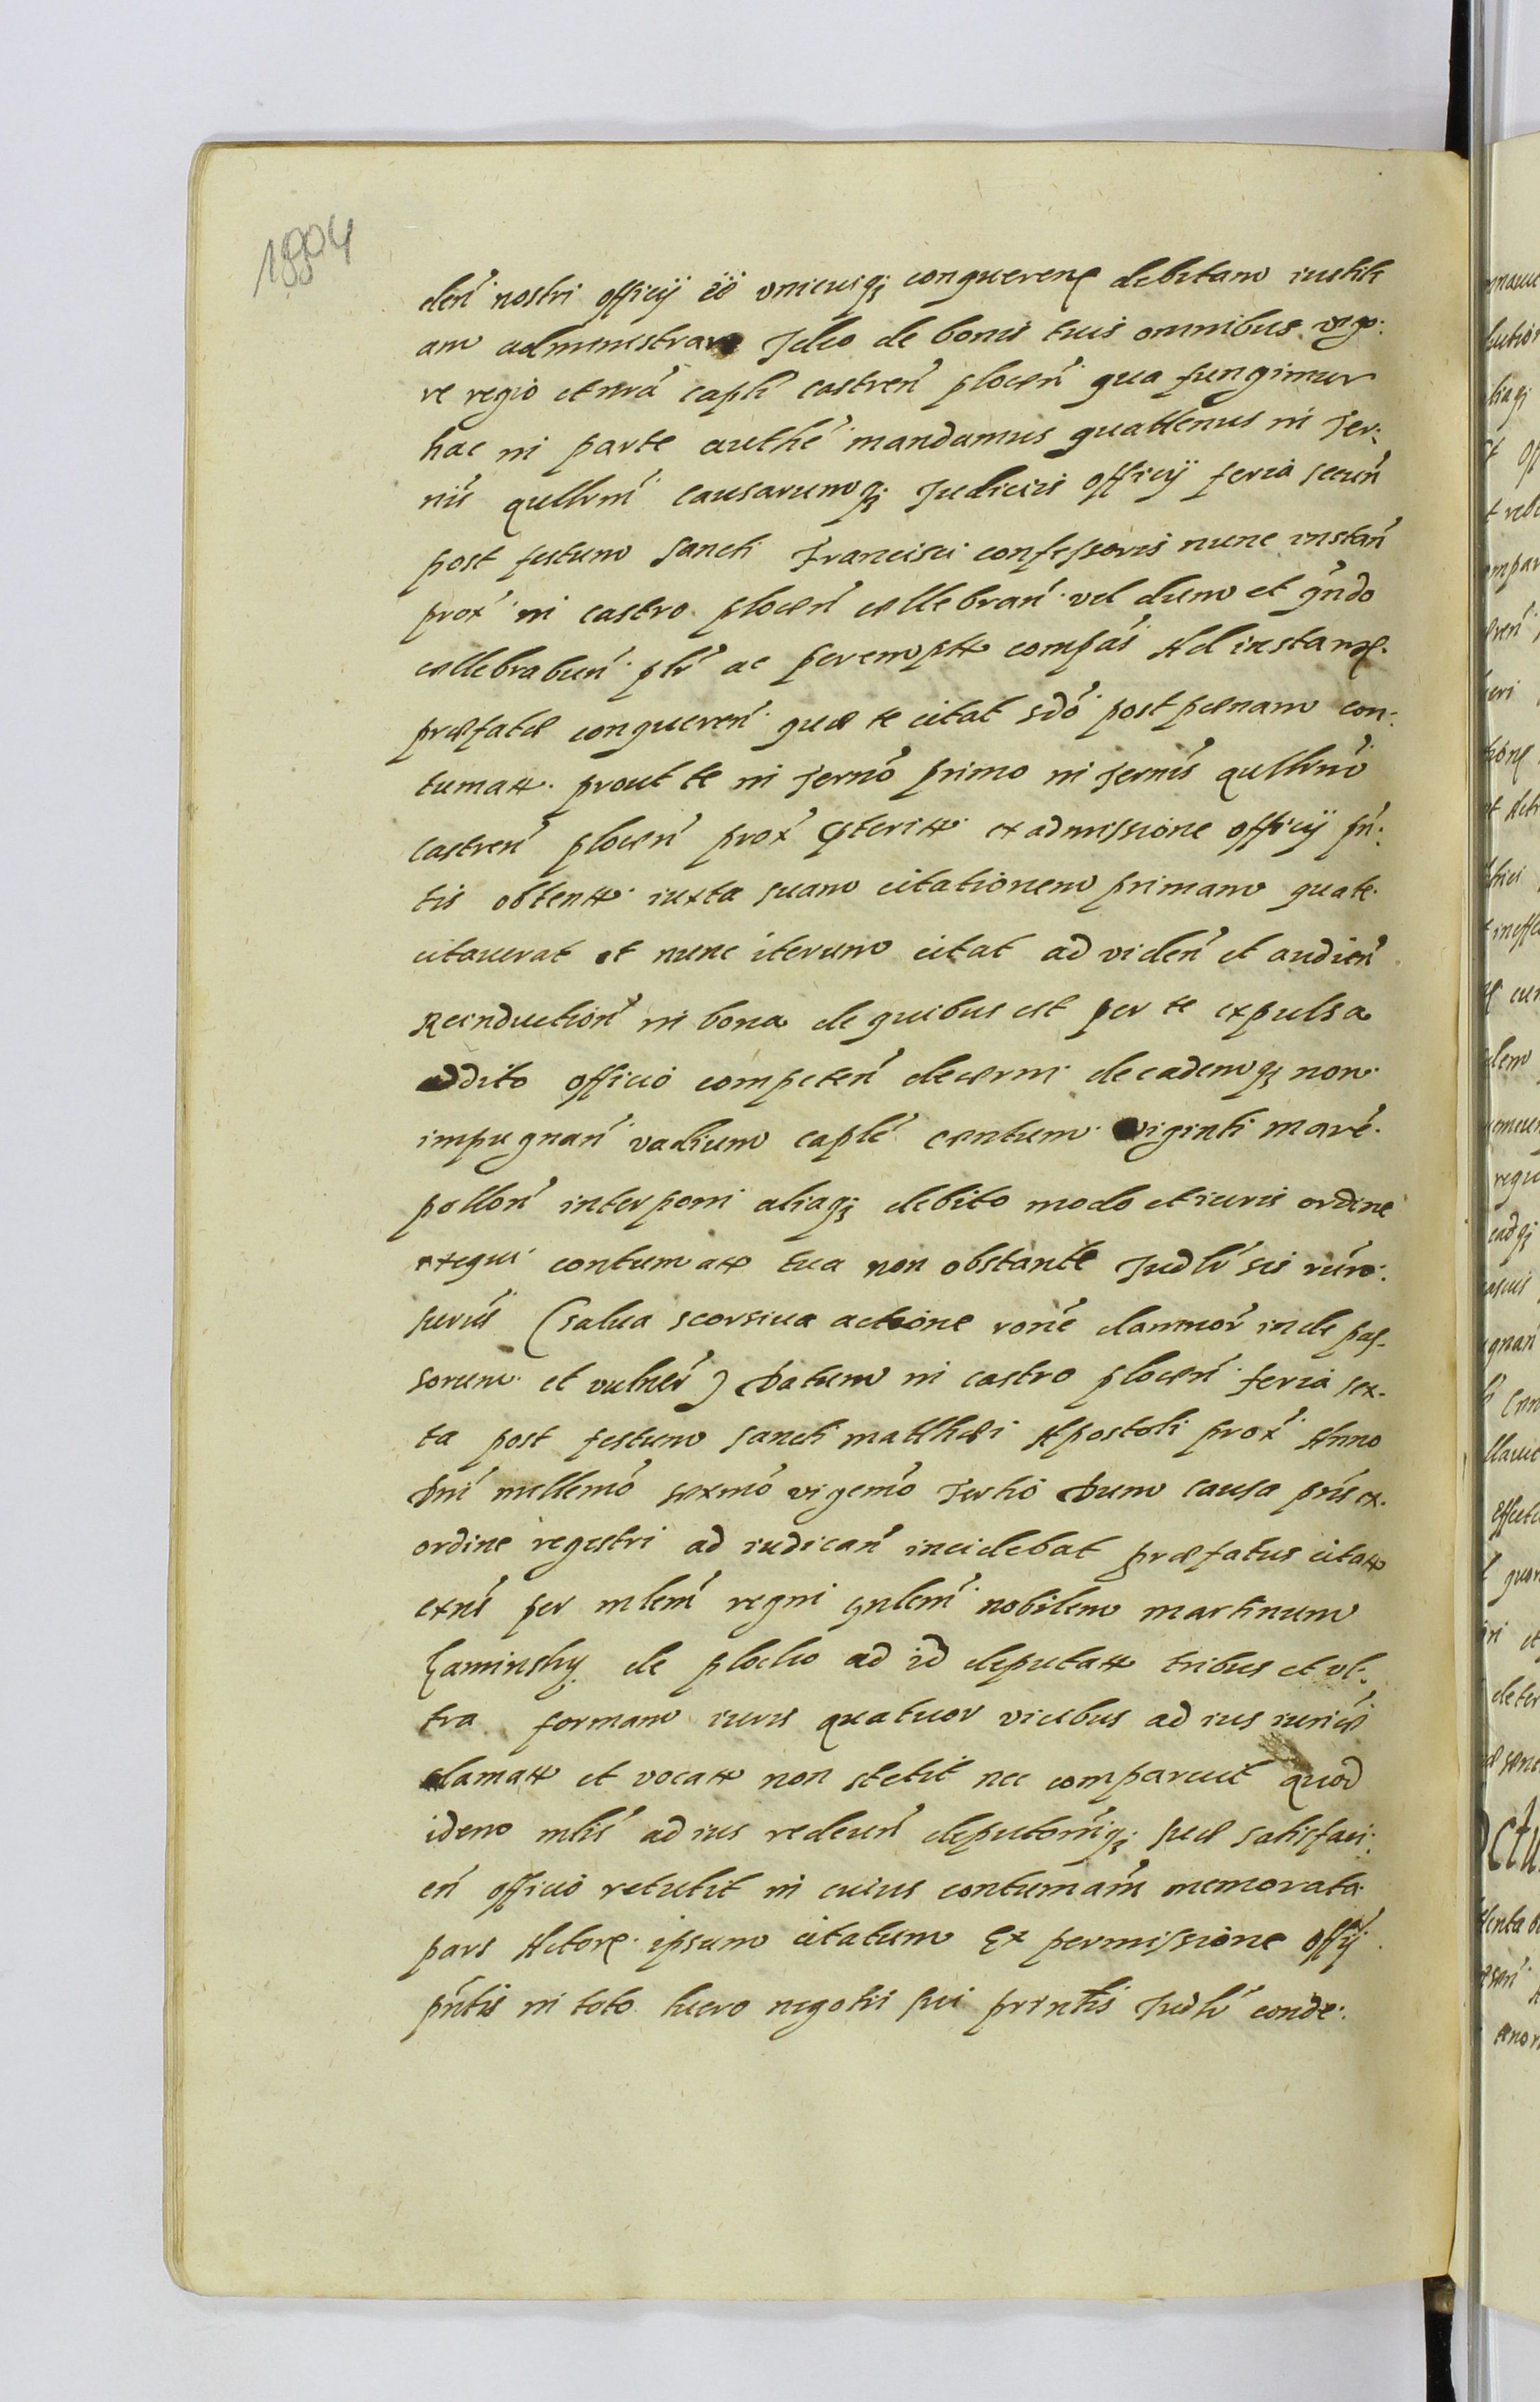 1884
den̄ nostri officij ēē unicuiqȝ conquerenȝ debitam iustiti
am administrare Ideo de bonis tuis omnibus vigo:
re regio et nr̄a capli castren̄ plocen̄ qua fungimur
hac in parte authē mandamus quattenus in Ter:
nis qullrn̄i causarumqȝ Judiciis officij feria secun̄
post festum Sancti Francisci confessoris nunc instan̄
prox̄ in castro plocen̄ cellebran̄ vel dum et qn̄do
cellebrabun̄ plr̄ ac peremptt compās Ad instanȝ
præfatæ conqueren̄ quæ te citat sdō post pœnam con:
tumatt prout te in Ternō primo in Ternīs qullrn̄i
castren̄ plocen̄ prox̄ pteritt ex admissione officij pn̄:
tis obtentt iuxta suam citationem primam qua te
citaverat et nunc iterum citat ad viden̄ et audien̄
Reinduction̄ in bona de quibus est per te expulsa
addito officio competen̄ decerni de eademqȝ non
impugnan̄ vadium caplē centum viginti marc̄
pollon̄ interponi aliaqȝ debito modo et iuris ordine
exequi contumatt tua non obstante Judlr̄ sis rūro:
surus (salva seorsiva actione ronē damnor̄ inde pas-
sorum et vulner̄) Datum in castro plocen̄ feria sex-
ta post festum Sancti matthæi Apostoli prox̄ Anno
Dn̄i millemō sexmō vigemō Tertio Dum causa prn̄s ex
ordine regestri ad iudican̄ incidebat præfatus citatt
exn̄s per mlem̄ regni gnlem̄ nobilem martinum
Caminsky de plocko ad id deputatt tribus et ul:
tra formam iuris quatuor vicibus ad ius iuricē
clamatt et vocatt non stetit nec comparuit quod
idem mlis̄ ad ius redeun̄ deputoniqȝ suæ satisfaci:
en̄ officio retulit in cuius contumām memorata
pars Actorȝ ipsum citatum Ex permissione offij
pn̄tis in toto lucro negotii sui prin̄tis Judlr̄ conde: